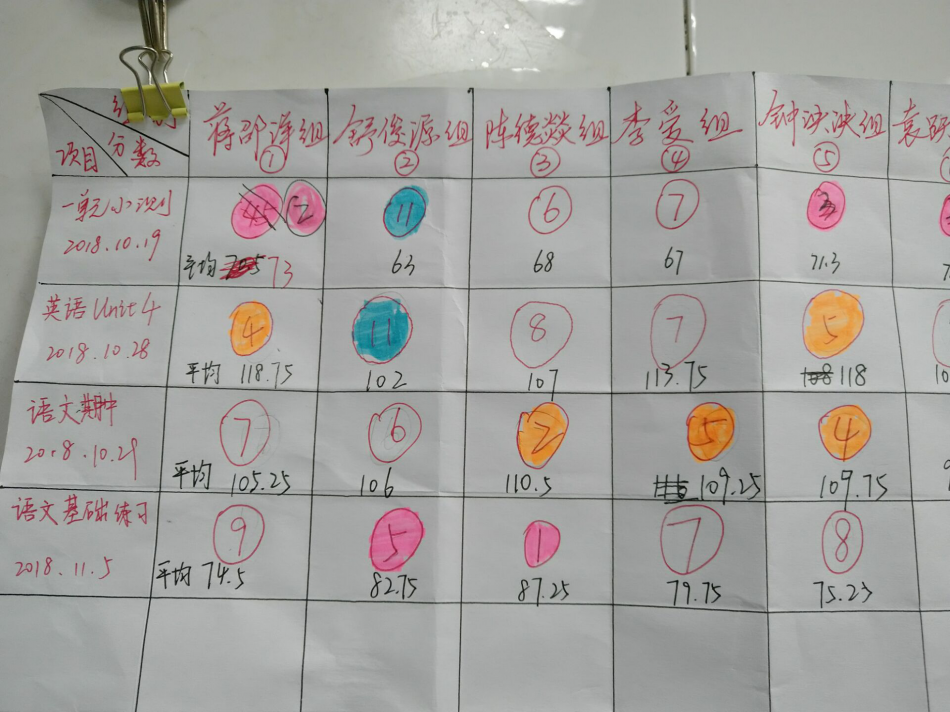 项目 分数
蒋邵洋组 舒俊源组 陈德焱组 李爱组 钟泱泱组
① ② ③ ④ ⑤
一单元小测 2 11 6 7 3
2018.10.19 平均 73 63 68 67 71.3
英语Unit4 4 11 8 7 5
2018.10.28 平均 118.75 102 107 113.75 118
语文期中 7 6 2 5 4
2018.10.29 平均 105.25 106 110.5 109.25 109.75
语文基础练习 9 5 1 7 8
2018.11.5 平均 74.5 82.75 87.25 79.75 75.23